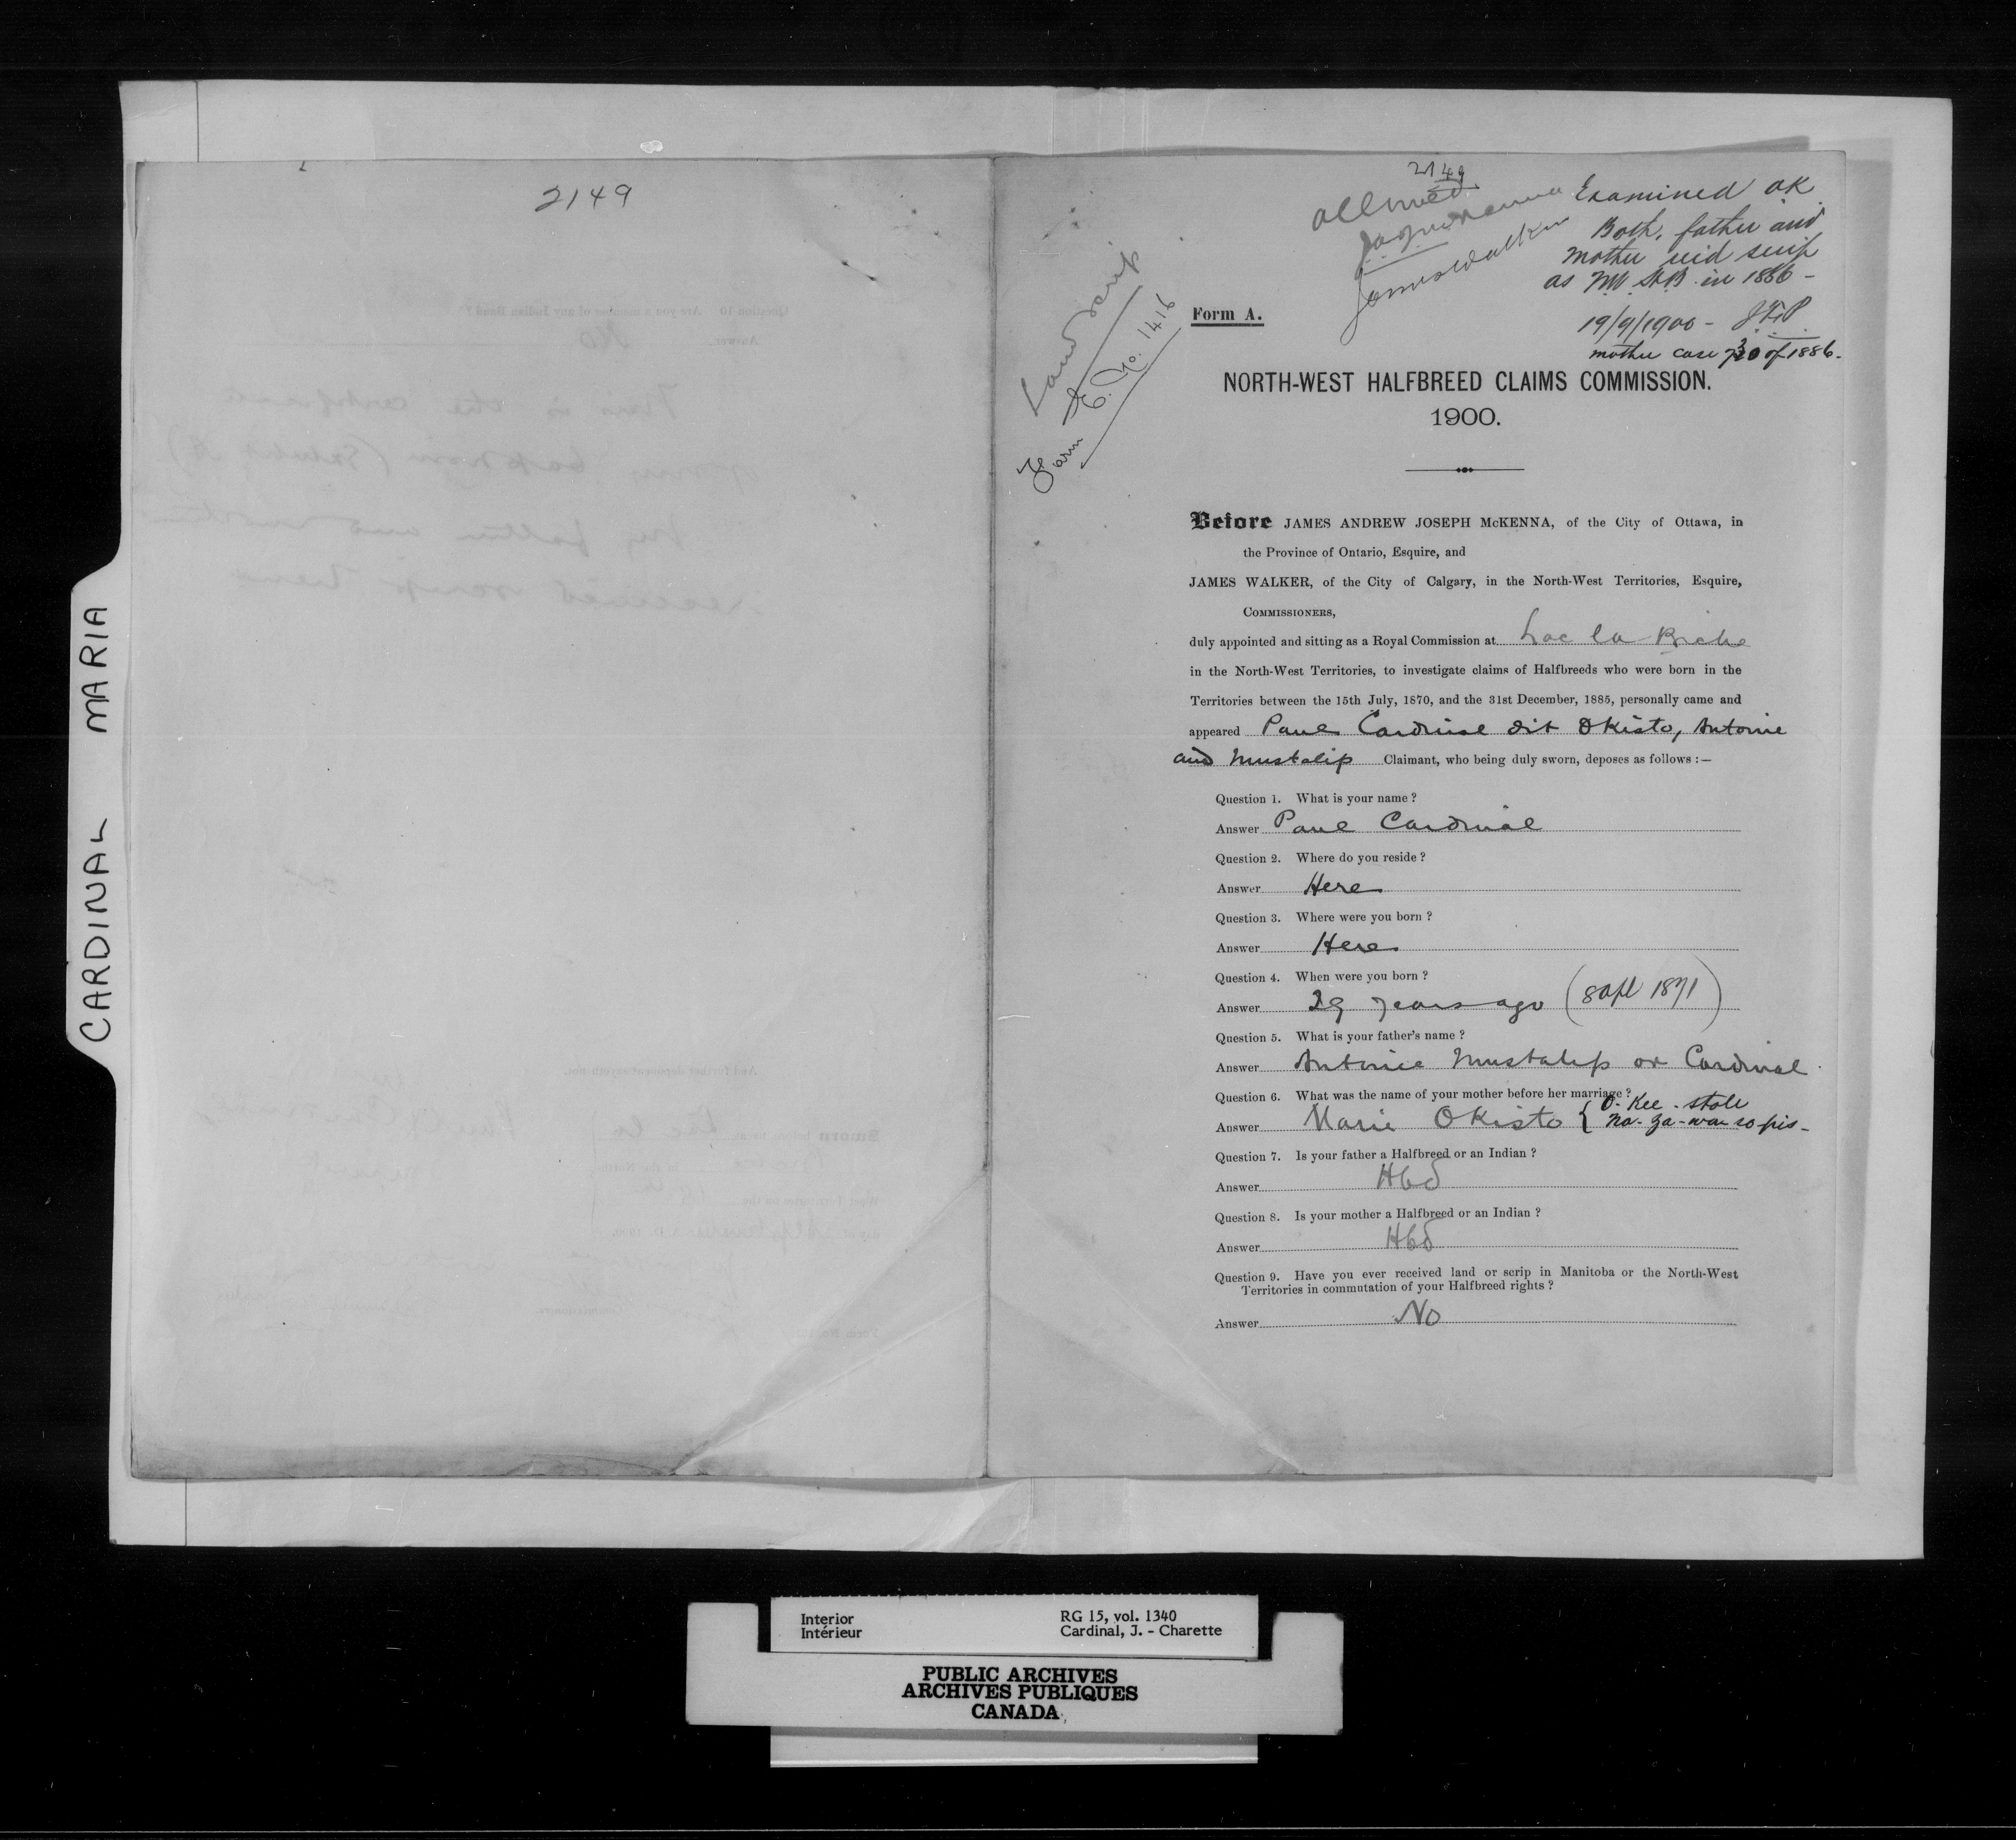 CARDINAL MARIA
2149
2149
Allowed
JAJ McKenna
James Walker
Examined OK
Both father and
mother rec'd scrip
as NW HB in 1886 -
19/9/1900 -
mother case 730 of 1886.
Land Scrip
Form E. No. 1416
Form A.
NORTH-WEST HALFBREED CLAIMS COMMISSION.
1900.
Before JAMES ANDREW JOSEPH McKENNA, of the City of Ottawa, in
the Province of Ontario, Esquire, and
JAMES WALKER, of the City of Calgary, in the North-West Territories, Esquire,
COMMISSIONERS,
duly appointed and sitting as a Royal Commission at Lac la Biche
in the North-West Territories, to investigate claims of Halfbreeds who were born in the
Territories between the 15th July, 1870, and the 31st December, 1885, personally came and
appeared Paul Cardinal dit Okisto, Antoine
and Mustalip Claimant, who being duly sworn, deposes as follows :—
Question 1. What is your name ?
Answer Paul Cardinal
Question 2. Where do you reside ?
Answer Here
Question 3. Where were you born ?
Answer Here
Question 4. When were you born ?
Answer 29 years ago (8 Apl 1871)
Question 5. What is your father's name ?
Answer Antoine Mustalip or Cardinal
Question 6. What was the name of your mother before her marriage ?
O-Kee-stole
Answer Marie Okisto {
Question 7. Is your father a Halfbreed or an Indian ?
Answer Hbd
Question 8. Is your mother a Halfbreed or an Indian ?
Answer Hbd
Question 9. Have you ever received land or scrip in Manitoba or the North-West
Territories in commutation of your Halfbreed rights ?
Answer No
Interior
Intérieur
RG 15, vol. 1340
Cardinal, J. - Charette
PUBLIC ARCHIVES
ARCHIVES PUBLIQUES
CANADA